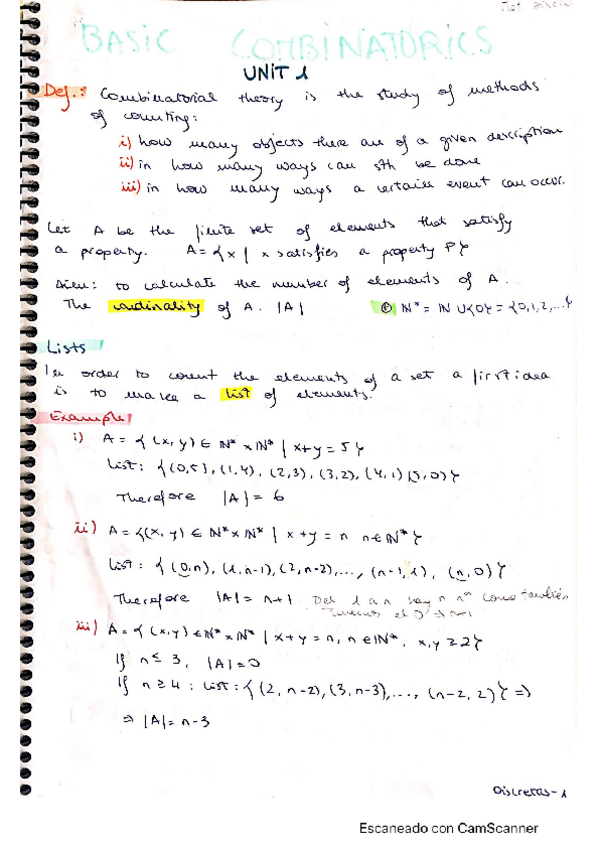 BASIC COMBINATORICS
UNIT 1
Def.: Combinatorial theory is the study of methods
of counting:
i) how many objects there are of a given description
ii) in how many ways can sth be done
iii) in how many ways a certain event can occur.
Let A be the finite set of elements that satisfy
a property. A = {x | x satisfies a property P}
Aim: to calculate the number of elements of A.
The cardinality of A. |A| N* = N ∪ {0} = {0,1,2,...}
Lists
In order to count the elements of a set a first idea
is to make a list of elements.
Example
i) A = {(x, y) ∈ N* x N* | x+y = 5}
List: {(0,5), (1,4), (2,3), (3,2), (4,1) (5,0)}
Therefore |A| = 6
ii) A = {(x, y) ∈ N* x N* | x+y = n n ∈ N*}
List: {(0,n), (1,n-1), (2,n-2),..., (n-1,1), (n,0)}
Therefore |A| = n+1 Del 1 a n hay n nº
iii) A = {(x,y) ∈ N* x N* | x+y = n, n ∈ N*, x,y ≥ 2}
If n ≤ 3, |A| = 0
If n ≥ 4 : List: {(2, n-2), (3, n-3),..., (n-2, 2)} =>
=> |A| = n-3
Discretas-1
Escaneado con CamScanner